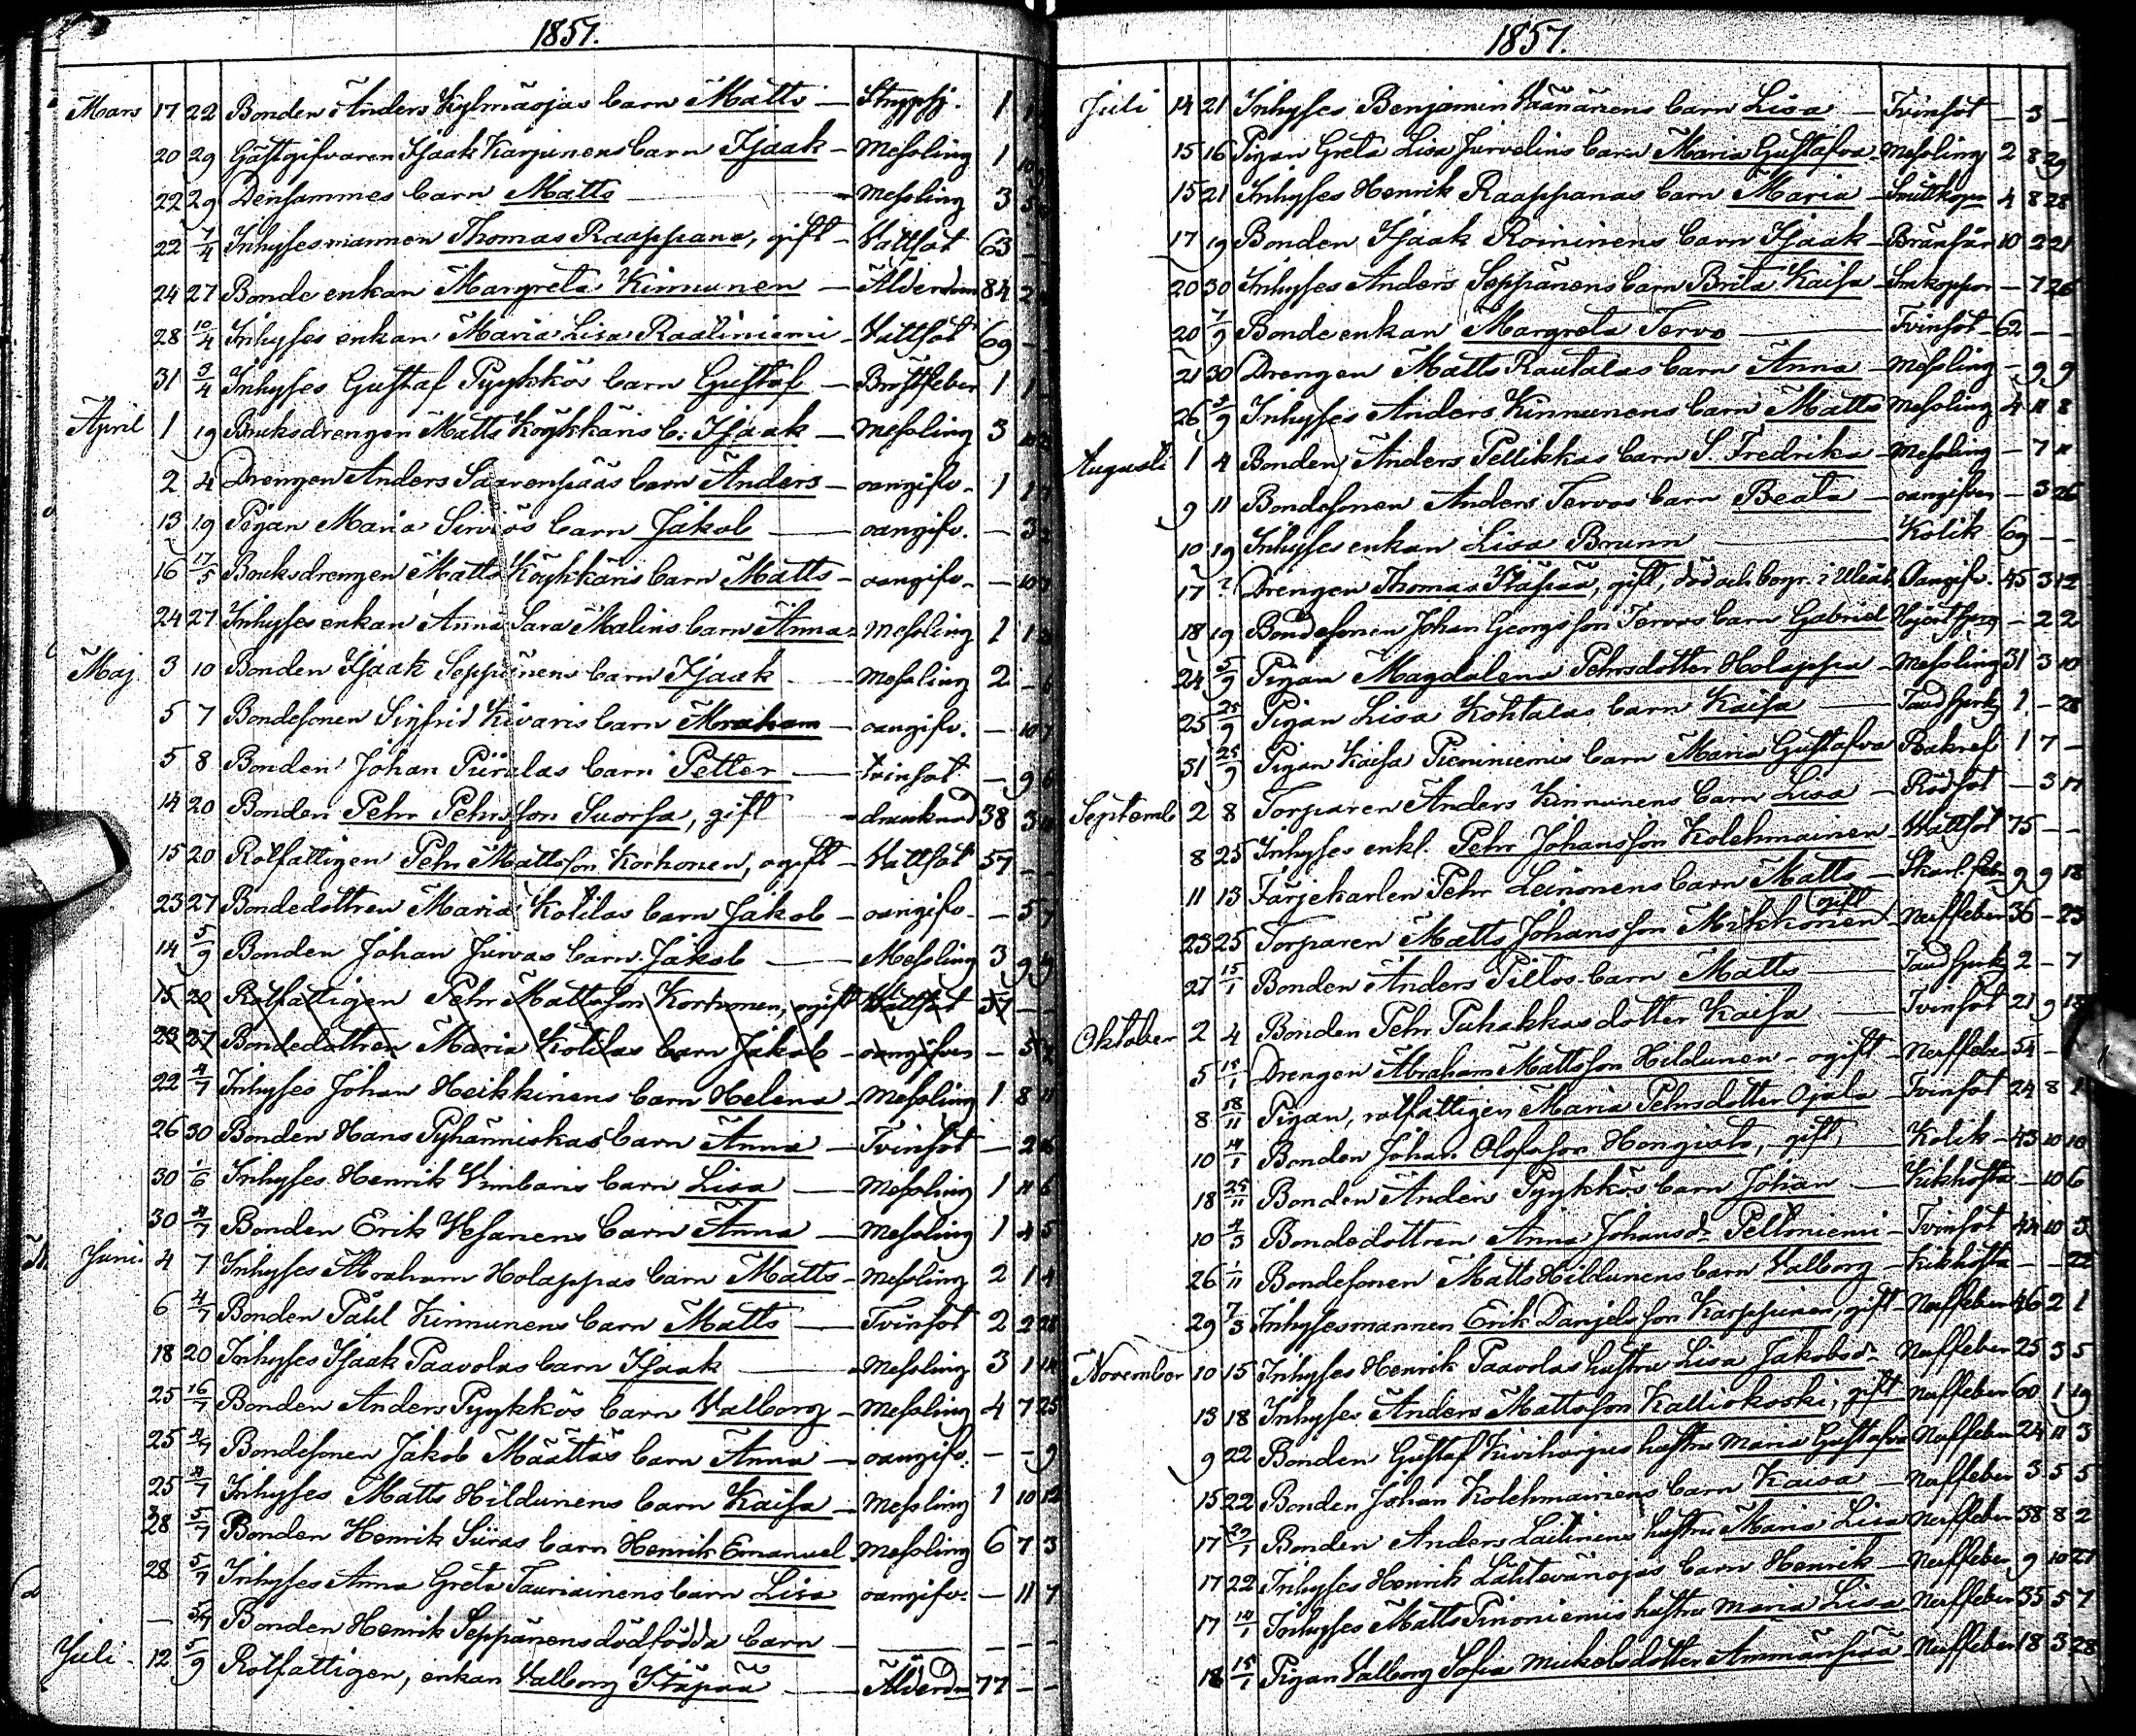 1857.
Mars 17 22 Bonden Anders Kylmäojas barn Matts — Strypsj. 1
20 29 Gästgifvaren Isaak Karjunens barn Isaak — Messling 1 10
22 29 Densammes barn Matts — Messling 3
22 7/4 Inhysesmannen Thomas Raappana, gift — Vattsot 63 - -
24 27 Bonde enkan Margreta Kinnunen — Ålderdom 84 2
28 10/4 Inhyses enkan Maria Lisa Raatiniemi — Vattsot 69 - -
31 5/4 Inhyses Gustaf Pyykkös barn Gustaf — Bröstfeber 1 1 -
April 1 19 Bruksdrengen Matts Köykkäris b: Isaak — Messling 3
2 4 Drengen Anders Saarenpääs barn Anders — oangifv. 1 1 7
13 19 Pigan Maria Sirviös barn Jakob — oangifv. — 3
16 17/5 Bruksdrengen Matts Köykkäris barn Matts — oangifv. — 10
24 27 Inhyses enkan Anna Sara Malins barn Anna — Messling 1 1
Maj 3 10 Bonden Isaak Seppänens barn Isaak — Messling 2 - 6
5 7 Bondesonen Sigfrid Kivaris barn Abraham — oangifv. — 10 7
5 8 Bonden Johan Piiralas barn Petter — tvinsot — 9 6
14 20 Bonden Pehr Pehrsson Suorsa, gift — drunknad 38 3
15 20 Rotfattigen Pehr Mattsson Korhonen, ogift — Vattsot 57 - -
23 27 Bondedottren Maria Kotilas barn Jakob — oangifv. — 5 7
14 5/9 Bonden Johan Jurvas barn Jakob — Messling 3 9
15 20 Rotfattigen Pehr Mattsson Korhonen, ogift Vattsot 57 - -
23 27 Bondedottren Maria Kotilas barn Jakob — oangifven — 5 7
22 4/7 Inhyses Johan Heikkinens barn Helena — Messling 1 8 11
26 30 Bonden Hans Pyhänniskas barn Anna — Tvinsot — 2
30 1/6 Inhyses Henrik Vimbaris barn Lisa — Messling 1 11 6
30 4/7 Bonden Erik Hesanens barn Anna — Messling 1 4 5
Juni 4 7 Inhyses Abraham Holappas barn Matts — Messling 2 1 4
6 4/7 Bonden Påhl Kinnunens barn Matts — Tvinsot 2 2 28
18 20 Inhyses Isaak Paavolas barn Isaak — Messling 3 1 14
25 16/7 Bonden Anders Pyykkös barn Valborg — Messling 4 7 25
25 4/7 Bondesonen Jakob Määttäs barn Anna — oangifv. — - 9
25 4/7 Inhyses Matts Hildunens barn Kaisa — Messling 1 10 12
28 5/7 Bonden Henrik Siiras barn Henrik Emanuel Messling 6 7 3
28 5/7 Inhyses Anna Greta Tauriainens barn Lisa oangifv. — 11 7
— 5/7 Bonden Henrik Seppänens dödfödda barn — — - - -
Juli 12 5/9 Rotfattigen, enkan Valborg Itäpää — Ålderdm 77 - -
1857.
Juli 14 21 Inhyses Benjamin Väänänens barn Lisa — Tvinsot — 3 —
15 16 Pigan Greta Lisa Jurvelins barn Maria Gustafva Messling 2 8 29
15 21 Inhyses Henrik Raappanas barn Maria — Smittkopp 4 8 28
17 19 Bonden Isaak Roininens barn Isaak — Bränsår 10 2 21
20 30 Inhyses Anders Seppänens barn Brita Kaisa — Smkoppor — 7 26
20 7/9 Bonde enkan Margreta Tervo — Tvinsot 62 — —
21 30 Drengen Matts Rautalas barn Anna — Messling — 9 9
26 5/9 Inhyses Anders Kinnunens barn Matts Messling 4 11 8
Augusti 1 4 Bonden Anders Pellikkas barn S. Fredrika — Messling — 7 11
9 11 Bondesonen Anders Tervos barn Beata — oangifven — 3 26
10 19 Inhyses enkan Lisa Brunn — Kolik 69 — —
17 ? Drengen Thomas Itäpää, gift, död och begr. i Uleåb. Oangifv. 45 3 12
18 19 Bondesonen Johan Georgsson Tervos barn Gabriel — 2 2
24 5/9 Pigan Magdalena Pehrsdotter Holappa — Messling 31 3 10
25 25/9 Pigan Lisa Kohtalas barn Kaisa — 1 — 28
31 25/9 Pigan Kaisa Pieniniemis barn Maria Gustafva 1 7 —
Septemb 2 8 Torparen Anders Kinnunens barn Lisa — Rödsot — 3 17
8 25 Inhyses enkl. Pehr Johansson Kolehmainen — Vattsot 75 — —
11 13 Färjekarlen Pehr Leinonens barn Matts — Skarl. feb 9 9 18
23 25 Torparen Matts Johansson Mikkonen (gift) Nerffeber 36 — 23
27 15/1 Bonden Anders Pillos barn Matts — 2 — 7
Oktober 2 4 Bonden Pehr Puhakkas dotter Kaisa — Tvinsot 21 9 18
5 15/1 Drengen Abraham Mattsson Hildunen — ogift — Nerffeber 54 —
8 18/11 Pigan, rotfattigen Maria Pehrsdotter Ojala — Tvinsot 24 8 1
10 14/1 Bonden Johan Olofsson Hongivals, gift, — Kolik — 43 10 10
18 25/11 Bonden Anders Pyykkös barn Johan — Kikhosta — 10 6
10 4/3 Bondedottren Anna Johansdr Peltoniemi — Tvinsot 44 10 3
26 1/11 Bondesonen Matts Hildunens barn Valborg — Kikhosta — — 22
29 7/3 Inhysesmannen Erik Danjelsson Karppinen, gift — Nerffeber 46 2 1
November 10 15 Inhyses Henrik Paavolas hustru Lisa Jakobsdr Nerffeber 25 3 5
13 18 Inhyses Anders Mattsson Kalliokoski, gift Nerffeber 60 1 19
9 22 Bonden Gustaf Kiviharjus hustru Maria Gustafva Nerffeber 24 11 3
15 22 Bonden Johan Kolehmainens barn Kaisa — Nerffeber 3 5 5
17 29/1 Bonden Anders Laitinens hustru Maria Lisa Nerffeber 38 8 2
17 22 Inhyses Henrik Lähtevänojas barn Henrik — Nerffeber 9 10 27
17 14/1 Inhyses Matts Pinoniemis hustru Maria Lisa Nerffeber 35 5 7
18 15/1 Pigan Valborg Sofia Mickelsdotter Ämmänpää — Nerffeber 18 3 28